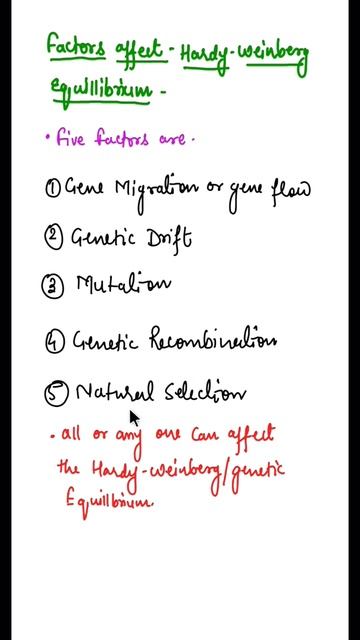 Factors affect - Hardy-Weinberg
Equillibrium -
• Five factors are.
① Gene Migration or gene flow
② Genetic Drift
③ Mutation
④ Genetic Recombination
⑤ Natural Selection
• all or any one can affect
the Hardy-Weinberg/genetic
Equillbrium.